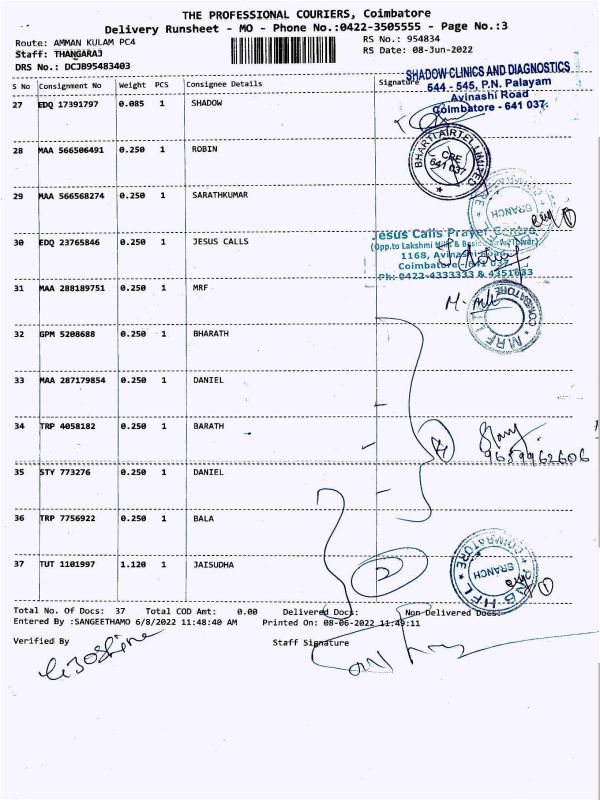 THE PROFESSIONAL COURIERS, Coimbatore
Delivery Runsheet - MO - Phone No.:0422-3505555 - Page No.:3
Route: AMMAN KULAM PC4
RS No.: 954834
Staff: THANGARAJ
RS Date: 08-Jun-2022
DRS No.: DCJB95483403
S No Consignment No Weight PCS Consignee Details Signature
SHADOW CLINICS AND DIAGNOSTICS
544 - 545, P.N. Palayam
Avinashi Road
Coimbatore - 641 037.
27 EDQ 17391797 0.085 1 SHADOW
28 MAA 566506491 0.250 1 ROBIN
BHARTI AIRTEL LIMITED
CBE
641 037
29 MAA 566568274 0.250 1 SARATHKUMAR
BRANCH
30 EDQ 23765846 0.250 1 JESUS CALLS
Jesus Calls Prayer Centre
(Opp.to Lakshmi Mills &
1168, Avinashi Road
Coimbatore - 641 037
Ph: 0422-4333333 & 4351633
31 MAA 288189751 0.250 1 MRF
COIMBATORE
32 GPM 5208688 0.250 1 BHARATH
33 MAA 287179854 0.250 1 DANIEL
34 TRP 4058182 0.250 1 BARATH
4
9659962606
35 STY 773276 0.250 1 DANIEL
36 TRP 7756922 0.250 1 BALA
37 TUT 1101997 1.120 1 JAISUDHA
2
COIMBATORE
BRANCH
1
Total No. Of Docs: 37 Total COD Amt: 0.00 Delivered Docs: Non Delivered Docs:
Entered By :SANGEETHAMO 6/8/2022 11:48:40 AM Printed On: 08-06-2022 11:49:11
Verified By Staff Signature